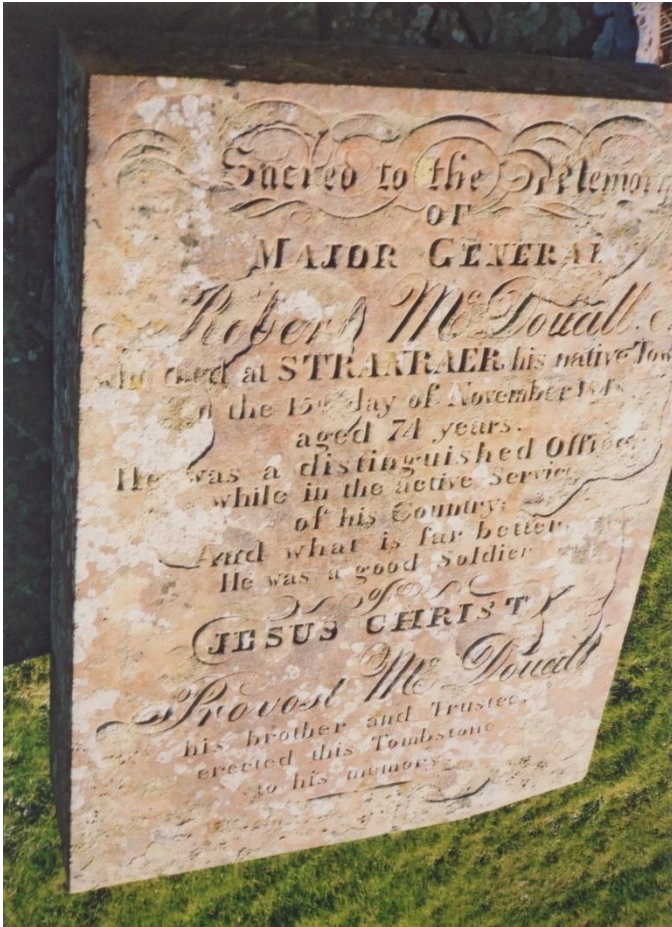 Sacred to the Memory
OF
MAJOR GENERAL
Robert Mc Douall.
who died at STRANRAER, his native Tow
the 15th day of November 184
aged 74 years.
He was a distinguished Officer
while in the active Service
of his Country;
And what is far better,
He was a good Soldier
of
JESUS CHRIST
Provost Mc Douall
his brother and Trustee,
erected this Tombstone
to his memory